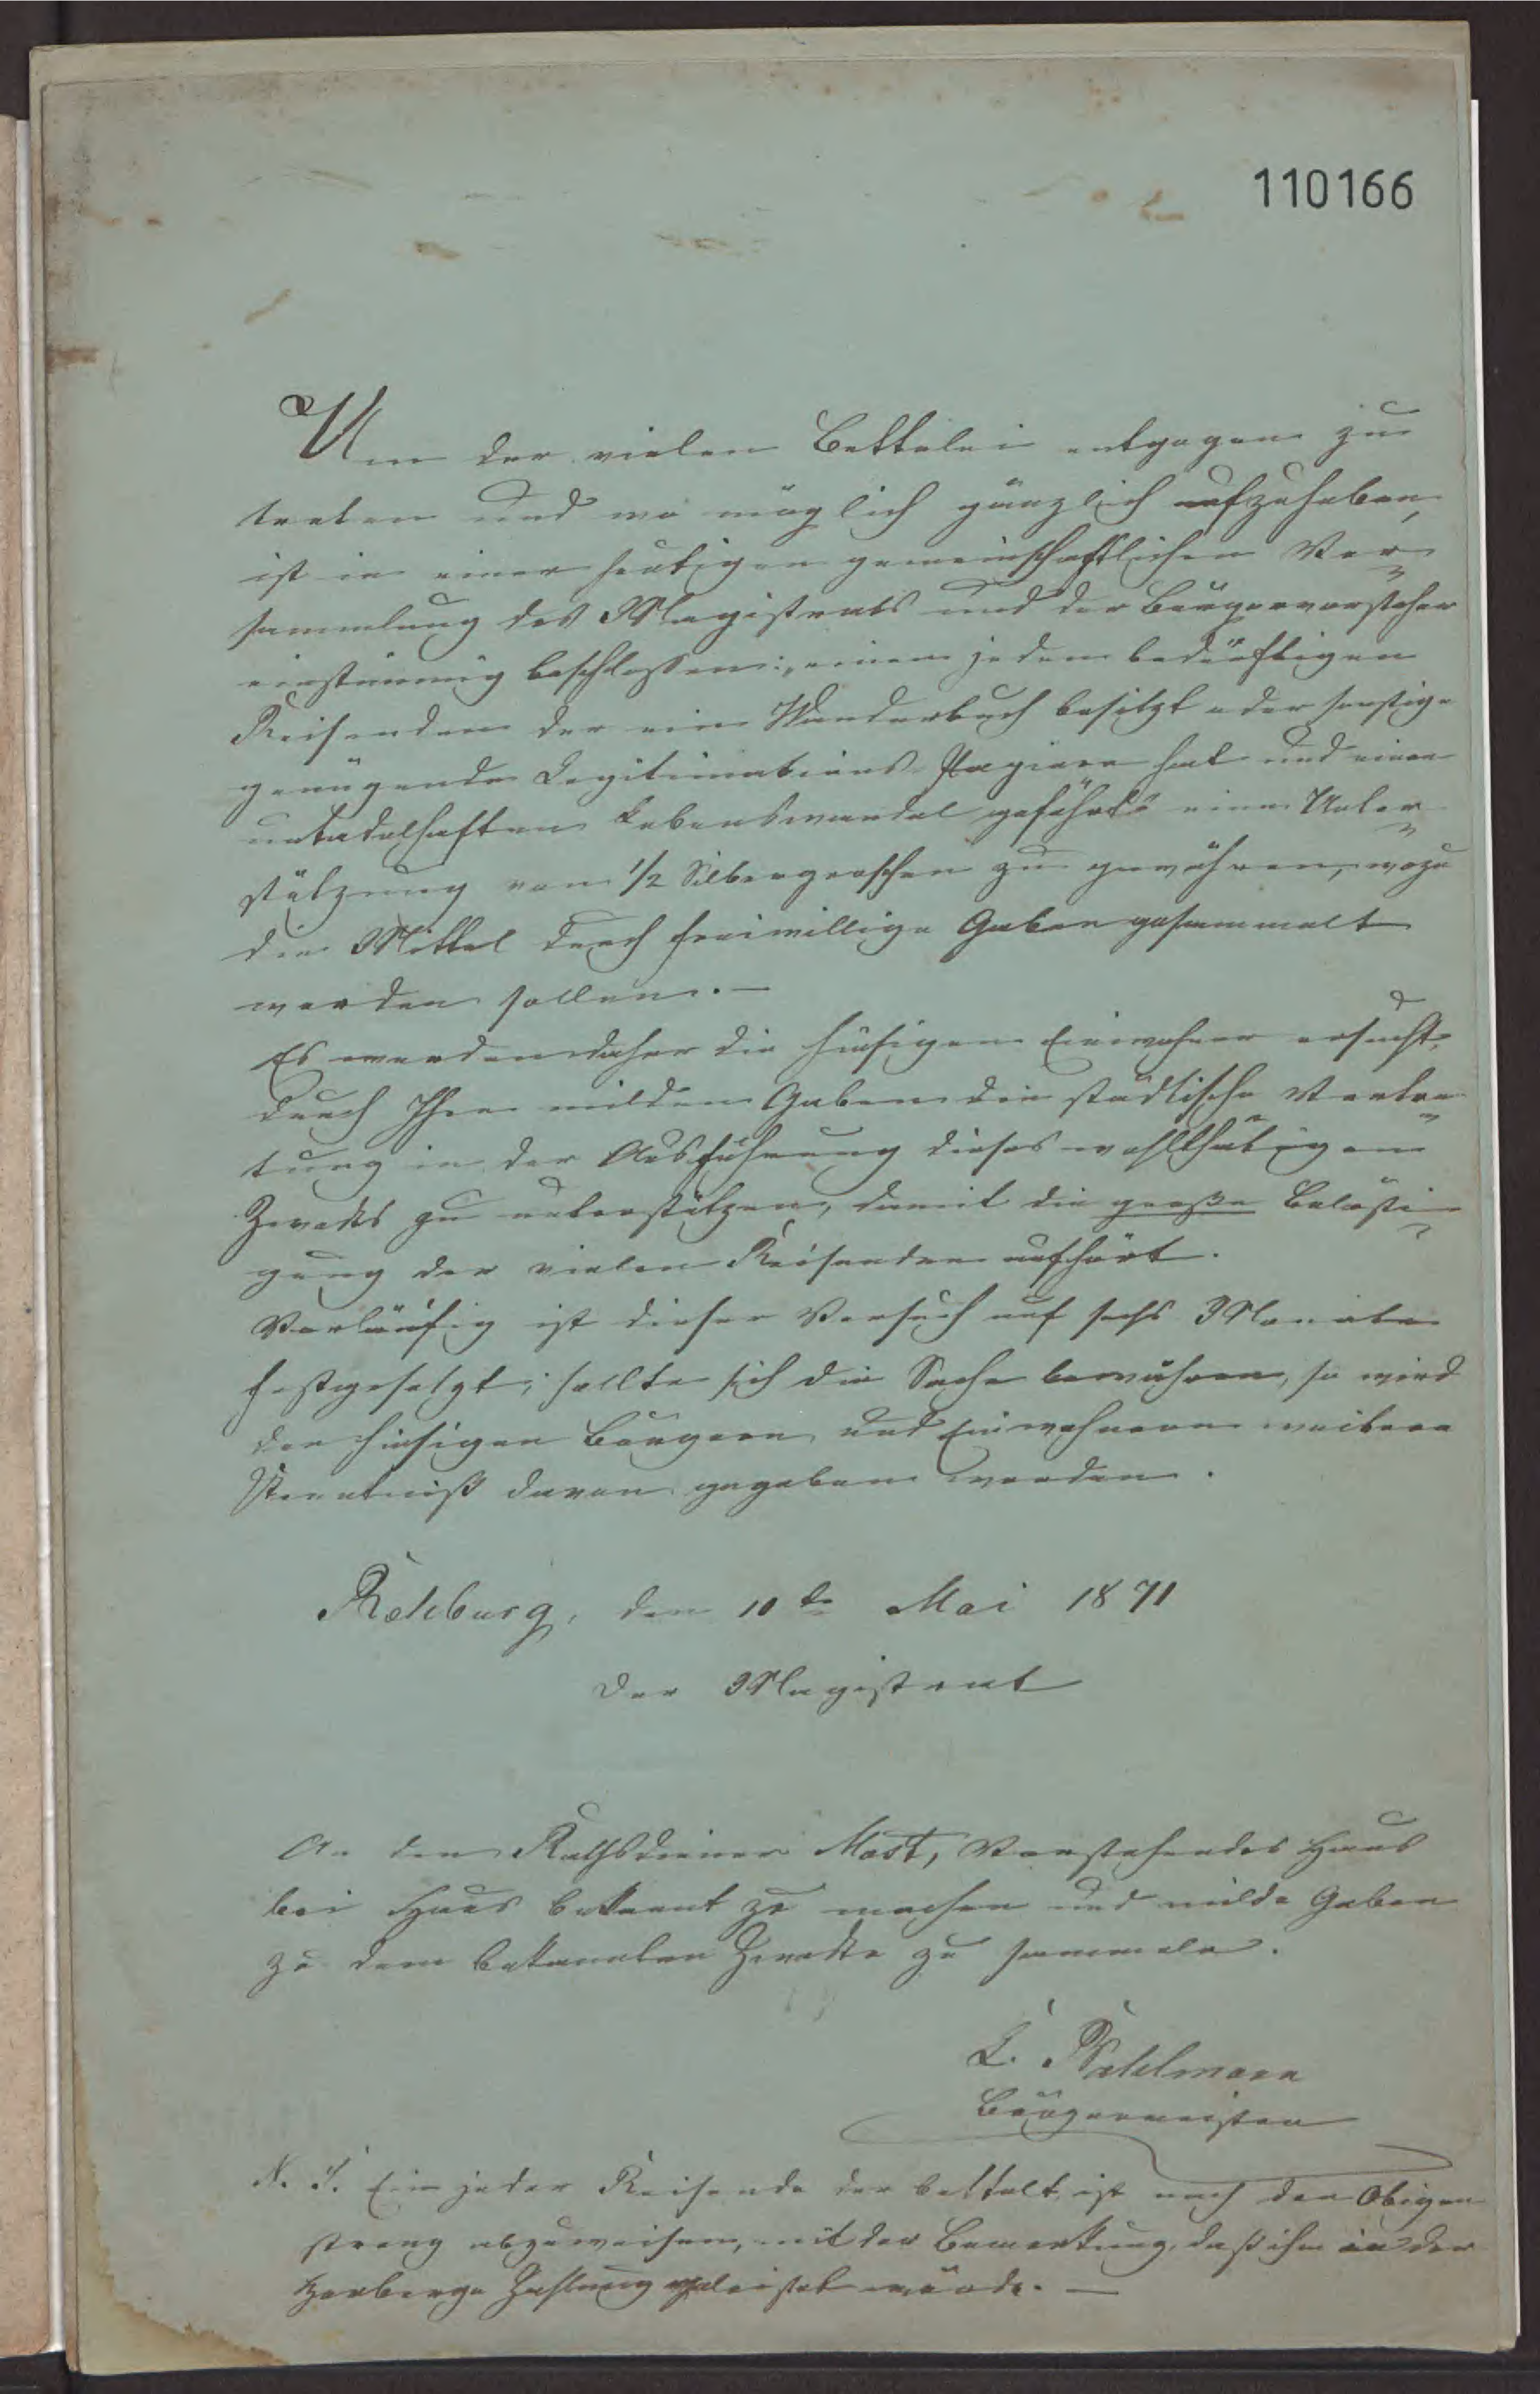 110166
Um der vielen Bettelei entgegen zu
treten und wo möglich gänzlich aufzuheben,
ist in einer heutigen gemeinschaftlichen Ver=
sammlung des Magistrats und der Bürgervorsteher
einstimmig beschlossen: „einem jeden bedürftigen
Reisenden der ein Wanderbuch besitzt oder sonstige
genügende Legitimations-Papiere hat und einen
untadelhaften Lebenswandel geführt" eine Unter=
stützung von 1/2 Silbergroschen zu gewähren, wozu
die Mittel durch freiwillige Gaben gesammelt
werden sollen. —
Es werden daher die hiesigen Einwohner ersucht,
durch Ihre milden Gaben die städtische Vertre=
tung in der Ausführung dieses wohlthätigen
Zwecks zu unterstützen, damit die große Belästi=
gung der vielen Reisenden aufhört.
Vorläufig ist dieser Versuch auf sechs Monate
festgesetzt; sollte sich die Sache bewähren, so wird
den hiesigen Bürgern und Einwohnern weitere
Kenntniß davon gegeben werden.
Rehburg, den 10te Mai 1871
Der Magistrat
An den Rathsdiener Most, Vorstehendes Haus
bei Haus bekannt zu machen und milde Gaben
zu dem bekannten Zwecke zu sammeln.
Bürgermeister
Ein jeder Reisende der bettelt, ist nach den Obigen
streng abzuweisen, mit der Bemerkung, daß ihm in der
Herberge Zahlung geleistet würde. —